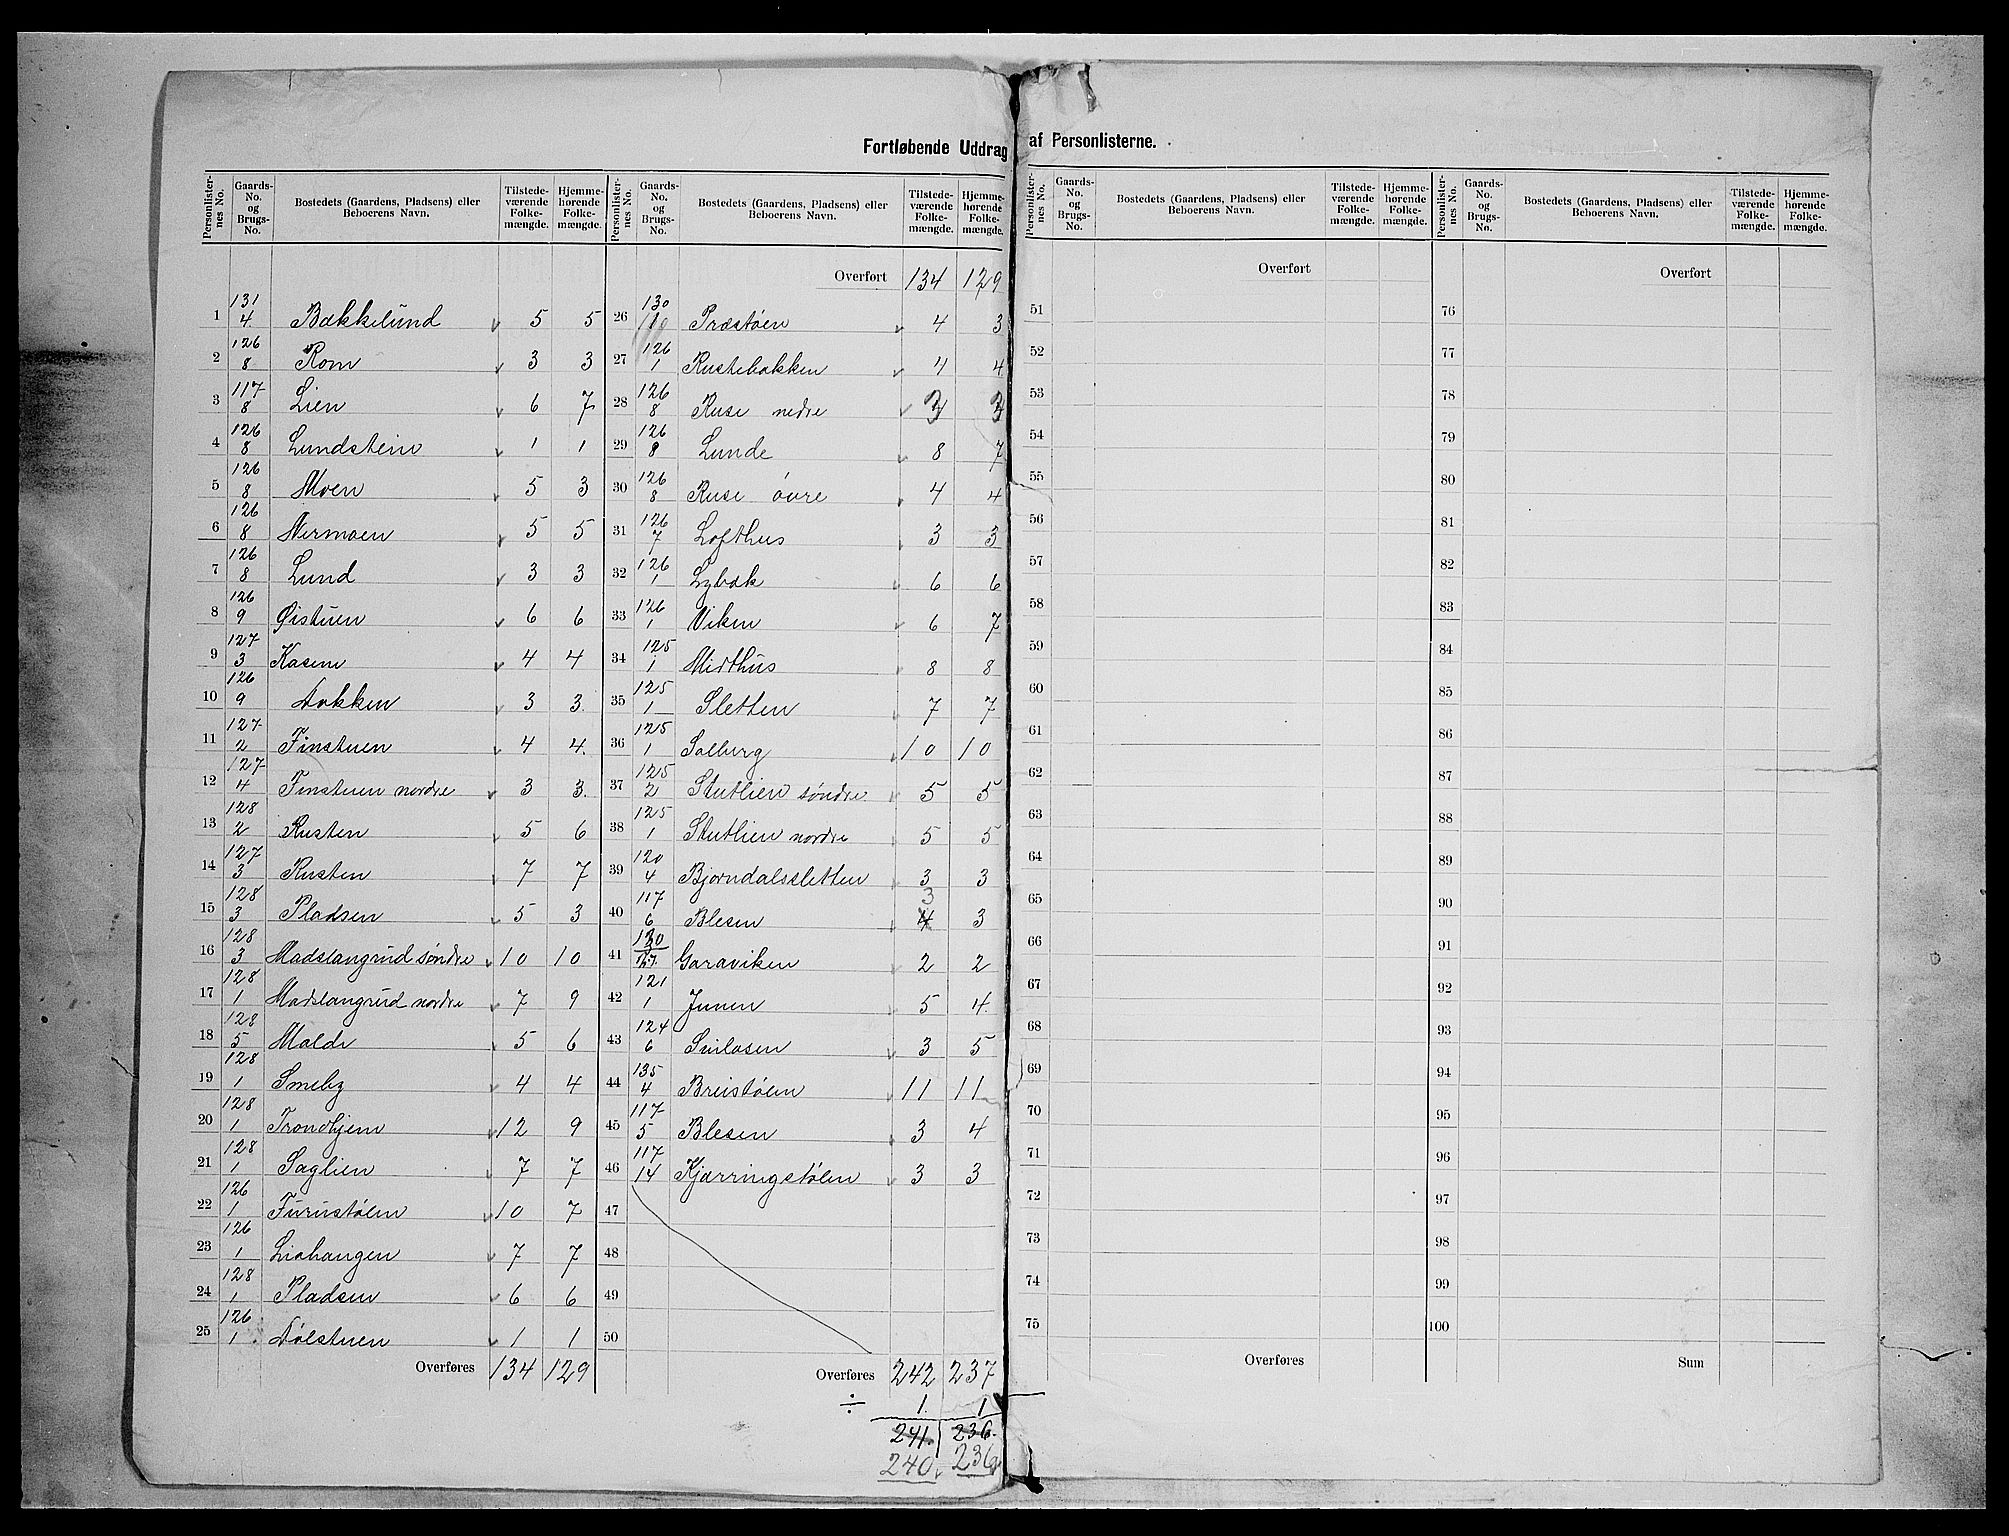 Fortløbende Uddrag af Personlisterne.
Personlister-nes No. | Gaards-No. og Brugs-No. | Bostedets (Gaardens, Pladsens) eller Beboerens Navn. | Tilstede-værende Folke-mængde. | Hjemme-hørende Folke-mængde.
1 | 131/4 | Bækkelund | 5 | 5
2 | 126/8 | Rom | 3 | 3
3 | 117/8 | Lien | 6 | 7
4 | 126/8 | Lundstein | 1 | 1
5 | 126/8 | Moen | 5 | 3
6 | 126/8 | Nermoen | 5 | 5
7 | 126/8 | Lund | 3 | 3
8 | 126/9 | Øistuen | 6 | 6
9 | 127/3 | Kasene | 4 | 4
10 | 126/9 | Dokken | 3 | 3
11 | 127/2 | Finstuen | 4 | 4.
12 | 127/4 | Finstuen nordre | 3 | 3.
13 | 128/2 | Rusten | 5 | 6
14 | 127/3 | Rusten | 7 | 7
15 | 128/3 | Pladsen | 5 | 3
16 | 128/3 | Madslangrud søndre | 10 | 10
17 | 128/1 | Madslangrud nordre | 7 | 9
18 | 128/5 | Molde | 5 | 6
19 | 128/1 | Smeby | 4 | 4
20 | 128/1 | Trondhjem | 12 | 9
21 | 128/1 | Saglien | 7 | 7
22 | 126/1 | Furustølen | 10 | 7
23 | 126/1 | Liahaugen | 7 | 7
24 | 128/1 | Pladsen | 6 | 6
25 | 126/1 | Dølstuen | 1 | 1
Overføres 134 129
Personlister-nes No. | Gaards-No. og Brugs-No. | Bostedets (Gaardens, Pladsens) eller Beboerens Navn. | Tilstede-værende Folke-mængde. | Hjemme-hørende Folke-mængde.
Overført 134 129
26 | 130/110 | Præstøen | 4 | 3
27 | 126/1 | Rustebakken | 4 | 4
28 | 126/8 | Ruse nedre | 3 | 3
29 | 126/8 | Lunde | 8 | 7
30 | 126/8 | Ruse øvre | 4 | 4
31 | 126/7 | Lofthus | 3 | 3
32 | 126/1 | Lybæk | 6 | 6
33 | 126/1 | Viken | 6 | 7
34 | 125/1 | Midthus | 8 | 8
35 | 125/1 | Sletten | 7 | 7
36 | 125/1 | Solburg | 10 | 10
37 | 125/2 | Stutlien søndre | 5 | 5
38 | 125/1 | Stutlien nordre | 5 | 5
39 | 120/4 | Bjørndalssletten | 3 | 3
40 | 117/6 | Blesen | 4 3 | 3
41 | 130/127 | Garaviken | 2 | 2
42 | 121/1 | Junen | 5 | 4.
43 | 124/6 | Snilosen | 3 | 5
44 | 135/4 | Breistølen | 11 | 11
45 | 117/5 | Blesen | 3 | 4
46 | 117/14 | Kjærringstølen | 3 | 3
47
48
49
50
Overføres 242 237
÷ 1. 1
241. 236.
240 236
Personlister-nes No. | Gaards-No. og Brugs-No. | Bostedets (Gaardens, Pladsens) eller Beboerens Navn. | Tilstede-værende Folke-mængde. | Hjemme-hørende Folke-mængde.
Overført
51
52
53
54
55
56
57
58
59
60
61
62
63
64
65
66
67
68
69
70
71
72
73
74
75
Overføres
Personlister-nes No. | Gaards-No. og Brugs-No. | Bostedets (Gaardens, Pladsens) eller Beboerens Navn. | Tilstede-værende Folke-mængde. | Hjemme-hørende Folke-mængde.
Overført
76
77
78
79
80
81
82
83
84
85
86
87
88
89
90
91
92
93
94
95
96
97
98
99
100
Sum